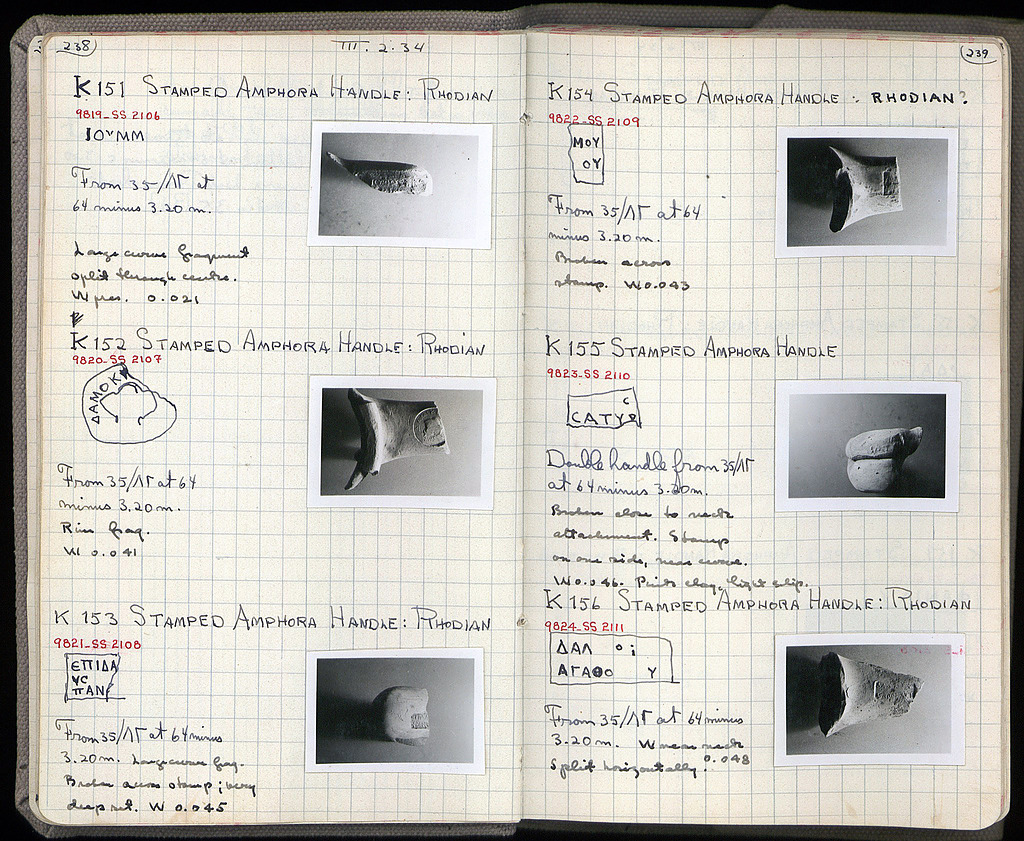 238
III. 2. 34
K 151 STAMPED AMPHORA HANDLE: RHODIAN
9819-SS 2106
ΙΟΥΜΜ
From 35/ΛΓ at
64 minus 3.20 m.
Large curve fragment
split through centre.
W pres. 0.021
K 152 STAMPED AMPHORA HANDLE: RHODIAN
9820-SS 2107
ΔΑΜΟΚ
From 35/ΛΓ at 64
minus 3.20 m.
Rim frag.
W 0.041
K 153 STAMPED AMPHORA HANDLE: RHODIAN
9821-SS 2108
ЄΠΙΔΑ
ΥC
ΠΑΝ
From 35/ΛΓ at 64 minus
3.20 m. Large curve frag.
Broken across stamp; very
deep set. W 0.045
239
K 154 STAMPED AMPHORA HANDLE: RHODIAN?
9822-SS 2109
ΜΟΥ
ΟΥ
From 35/ΛΓ at 64
minus 3.20 m.
Broken across
stamp. W 0.043
K 155 STAMPED AMPHORA HANDLE
9823-SS 2110
C
CΑΤΥ
Double handle from 35/ΛΓ
at 64 minus 3.20m.
Broken close to neck
attachment. Stamp
on one side, near curve.
W 0.046. Pink clay, light slip.
K 156 STAMPED AMPHORA HANDLE: RHODIAN
9824-SS 2111
ΔΑΛ ο ι
ΑΓΑΘΟ Υ
From 35/ΛΓ at 64 minus
3.20 m. W near neck
0.048
Split horizontally.